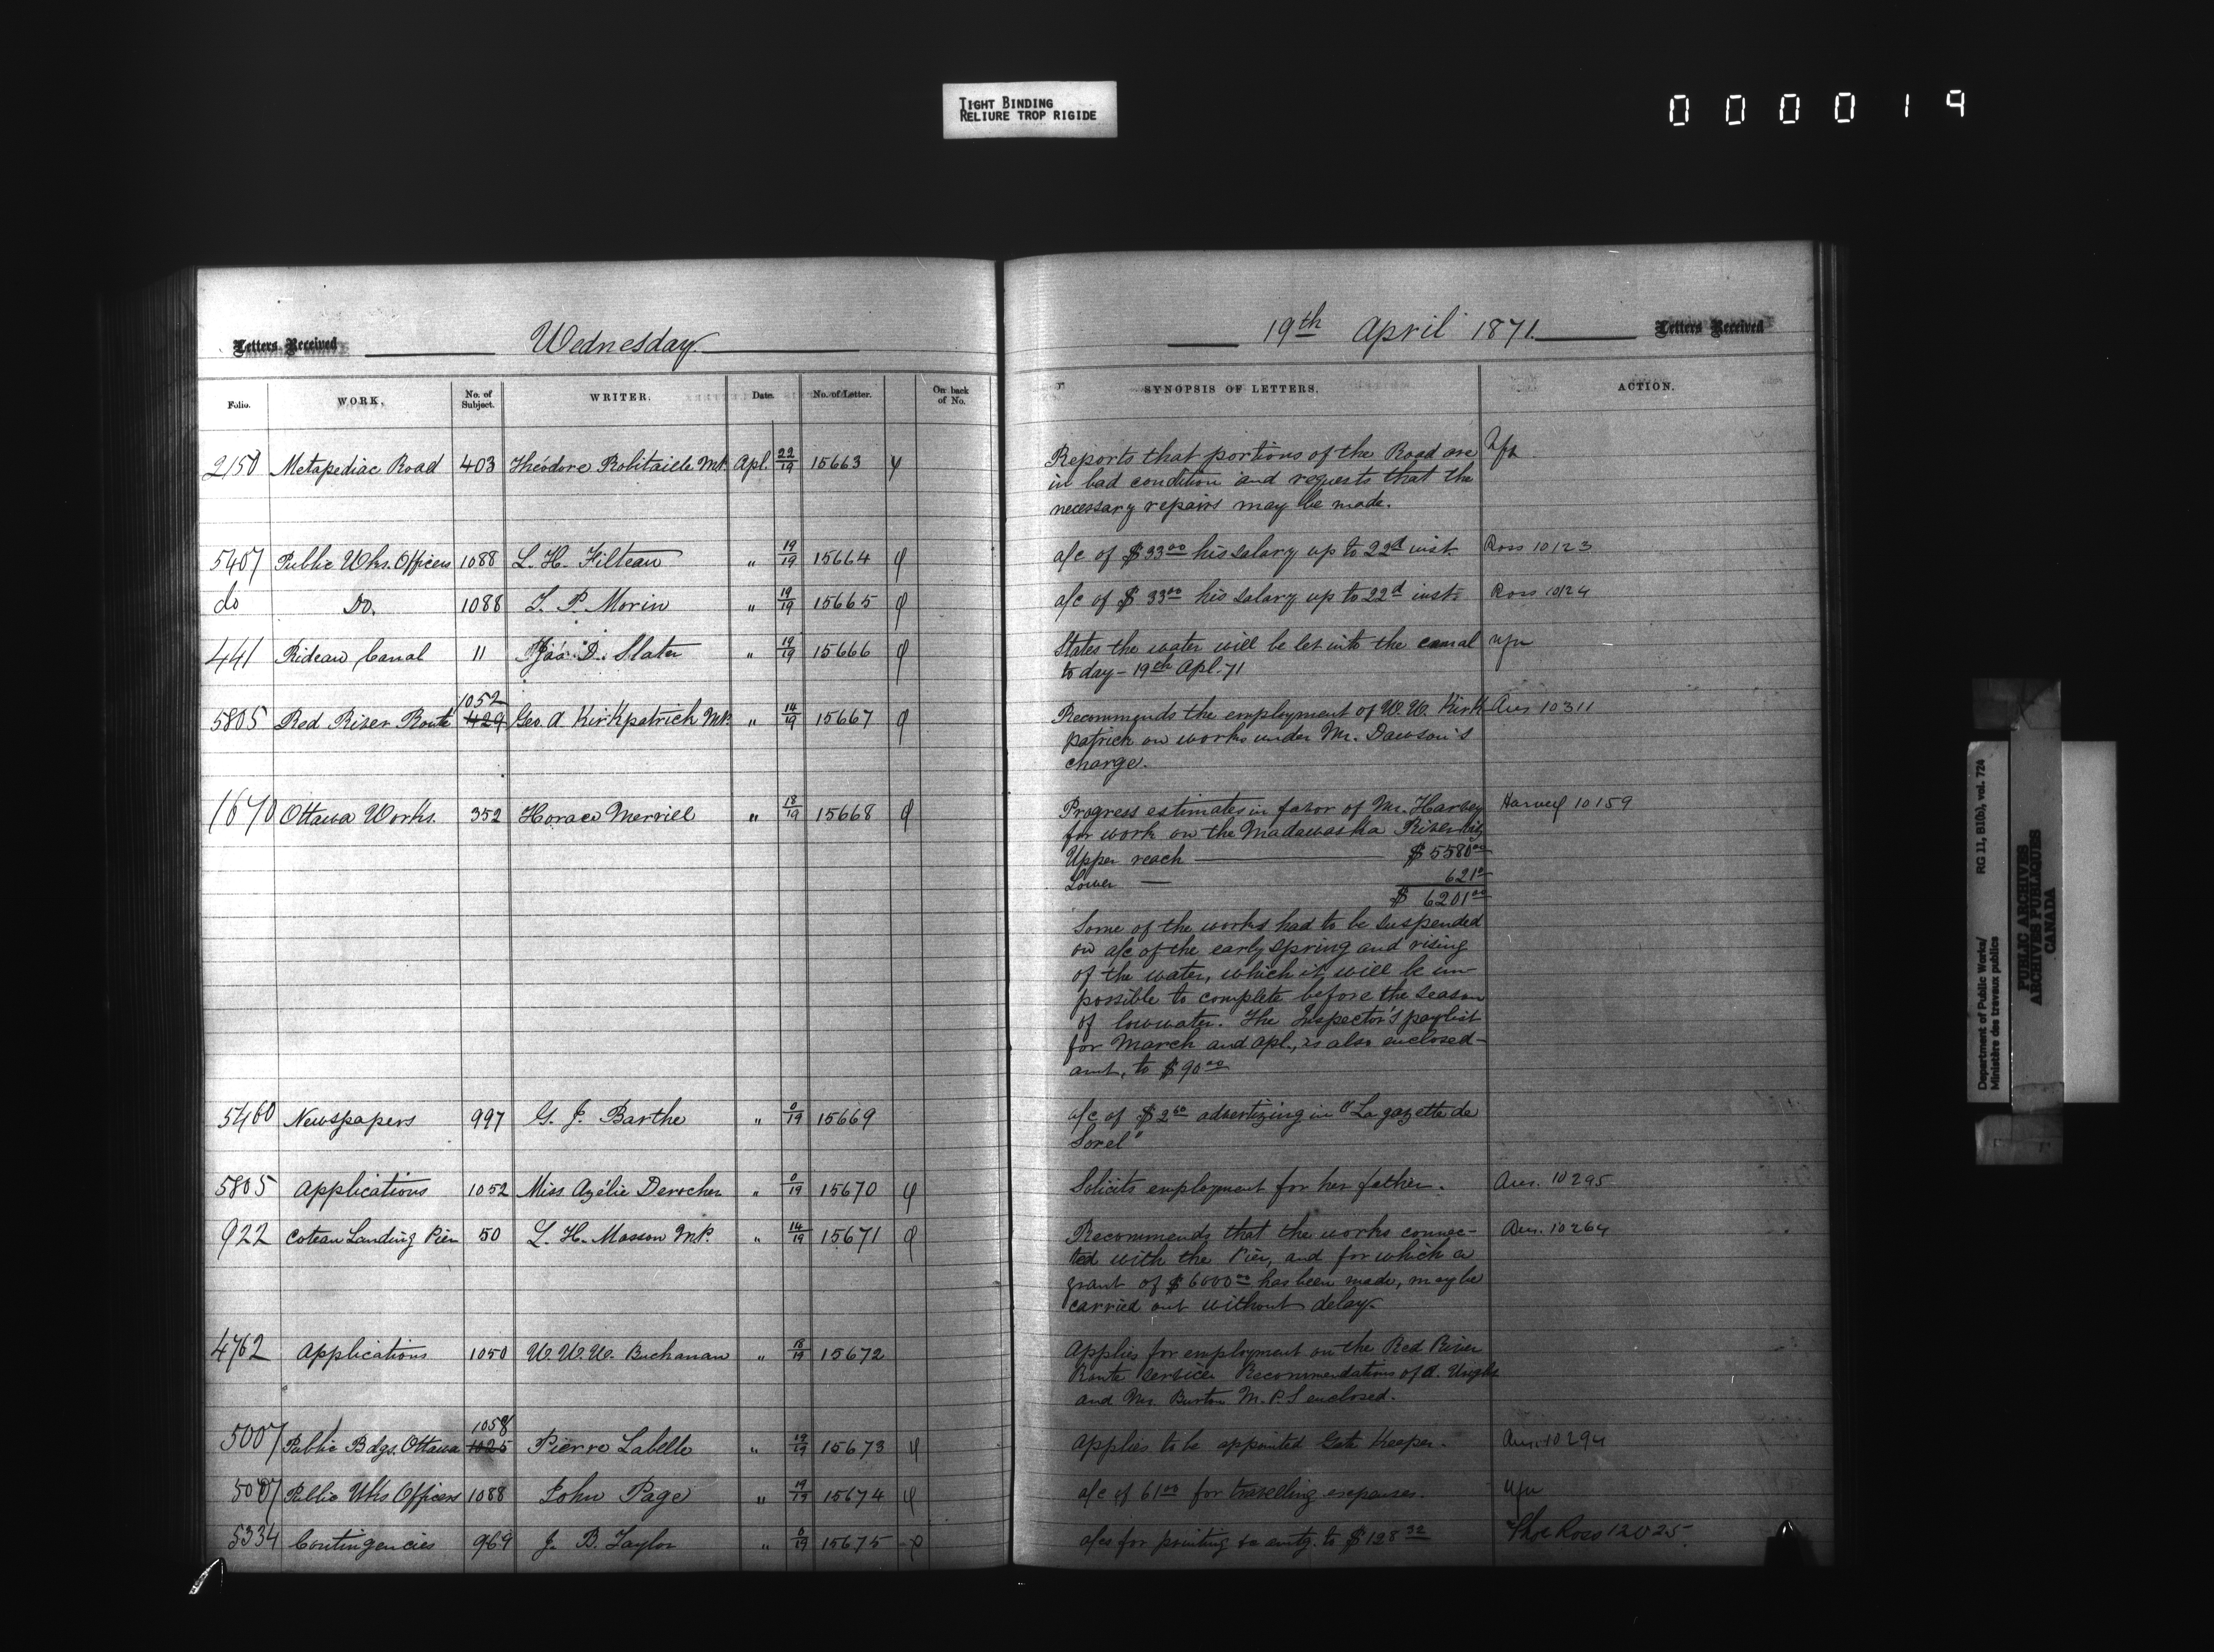 TIGHT BINDING
RELIURE TROP RIGIDE
000019
Letters Received Wednesday 19th April 1871. Letters Received
Folio. WORK. No. of Subject. WRITER. Date. No. of Letter. On back of No. SYNOPSIS OF LETTERS. ACTION.
2150 Metapediac Road 403 Théodore Robitaille M.P. Apl. 22/19 15663 Reports that portions of the Road are
in bad condition and requests that the
necessary repairs may be made.
5407 Public Wks. Officers 1088 L. H. Filteau " 19/19 15664 φ a/c of $33.00 his salary up to 22d inst. Ross 10123
do Do. 1088 L. P. Morin " 19/19 15665 φ a/c of $33.00 his salary up to 22d inst. Ross 10124
441 Rideau Canal 11 Jas. D. Slater " 19/19 15666 φ States the water will be let into the canal
to day - 19th Apl. 71
5805 Red River Route 1052 429 Geo A Kirkpatrick M.P. " 14/19 15667 φ Recommends the employment of W. W. Kirk Ans 10311
patrick on works under Mr. Dawson's
charge.
1670 Ottawa Works. 352 Horace Merrill " 18/19 15668 φ Progress estimates in favor of Mr. Harvey Harvey 10159
for work on the Madawaska River viz
Upper reach — $5580.00
Lower — 621.00
$ 6201.00
Some of the works had to be suspended
on a/c of the early spring and rising
of the water, which it will be im-
possible to complete before the season
of low water. The Inspector's paylist
for March and Apl., is also enclosed -
amt. to $90.00
5460 Newspapers 997 G. J. Barthe " 0/19 15669 a/c of $2.60 advertizing in "La gazette de
Sorel"
5805 Applications 1052 Miss Azélie Derocher " 0/19 15670 φ Solicits employment for her father. Ans. 10295
922 Coteau Landing Pier 50 L. H. Masson M.P. " 14/19 15671 φ Recommends that the works connec- Ans. 10264
ted with the Pier, and for which a
grant of $6000.00 has been made, may be
carried out without delay.
4762 Applications 1050 W. W. W. Buchanan " 18/19 15672 Applies for employment on the Red River
Route service. Recommendations of A.
and Mr. Burton M.P.S enclosed.
5007 Public Bdgs. Ottawa 1058 1025 Pierre Labelle " 19/19 15673 φ Applies to be appointed Gate Keeper. Ans. 10294
5007 Public Wks Officers 1088 John Page " 19/19 15674 φ a/c of 61.00 for travelling expenses.
5334 Contingencies 969 J. B. Taylor " 0/19 15675 φ a/cs for printing &c amtg. to $128.32 Ross 12025
Department of Public Works/ RG 11, B1(b), vol. 724
Ministère des travaux publics
PUBLIC ARCHIVES
ARCHIVES PUBLIQUES
CANADA